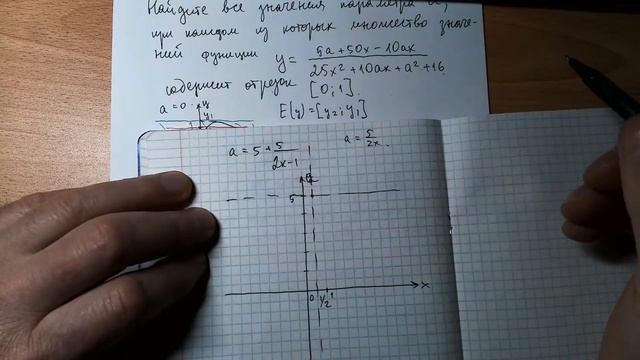 Найдите все значения параметра a,
при каждом из которых множество значе-
ний функции y = (5a + 50x − 10ax)/(25x² + 10ax + a² + 16)
содержит отрезок [0; 1].
a = 0. y
y₁
1
E(y) = [y₂; y₁]
a = 5 + 5/(2x−1)
a = 5/(2x).
a
5
0 1/2 1 x